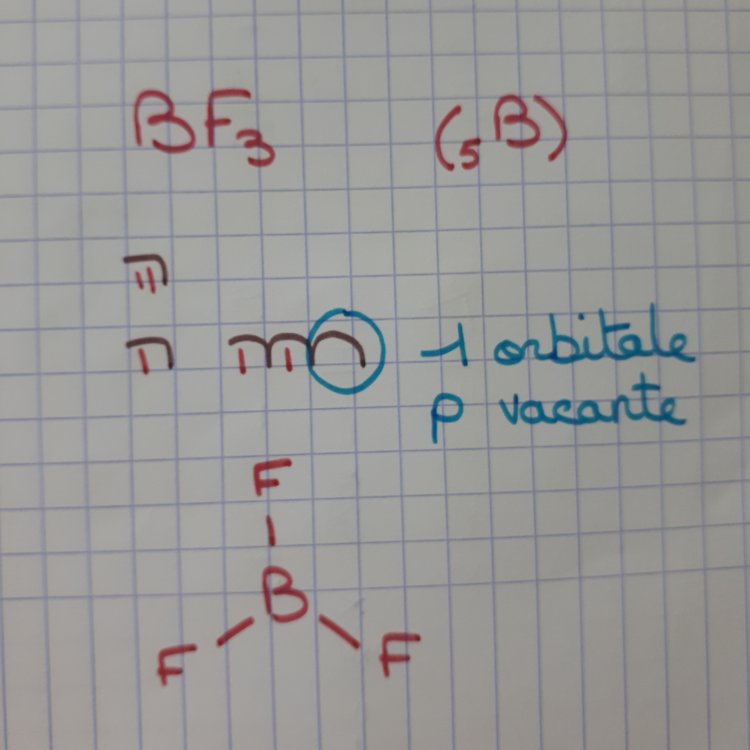 BF₃ (₅B)
1 orbitale
p vacante
F
B
F F